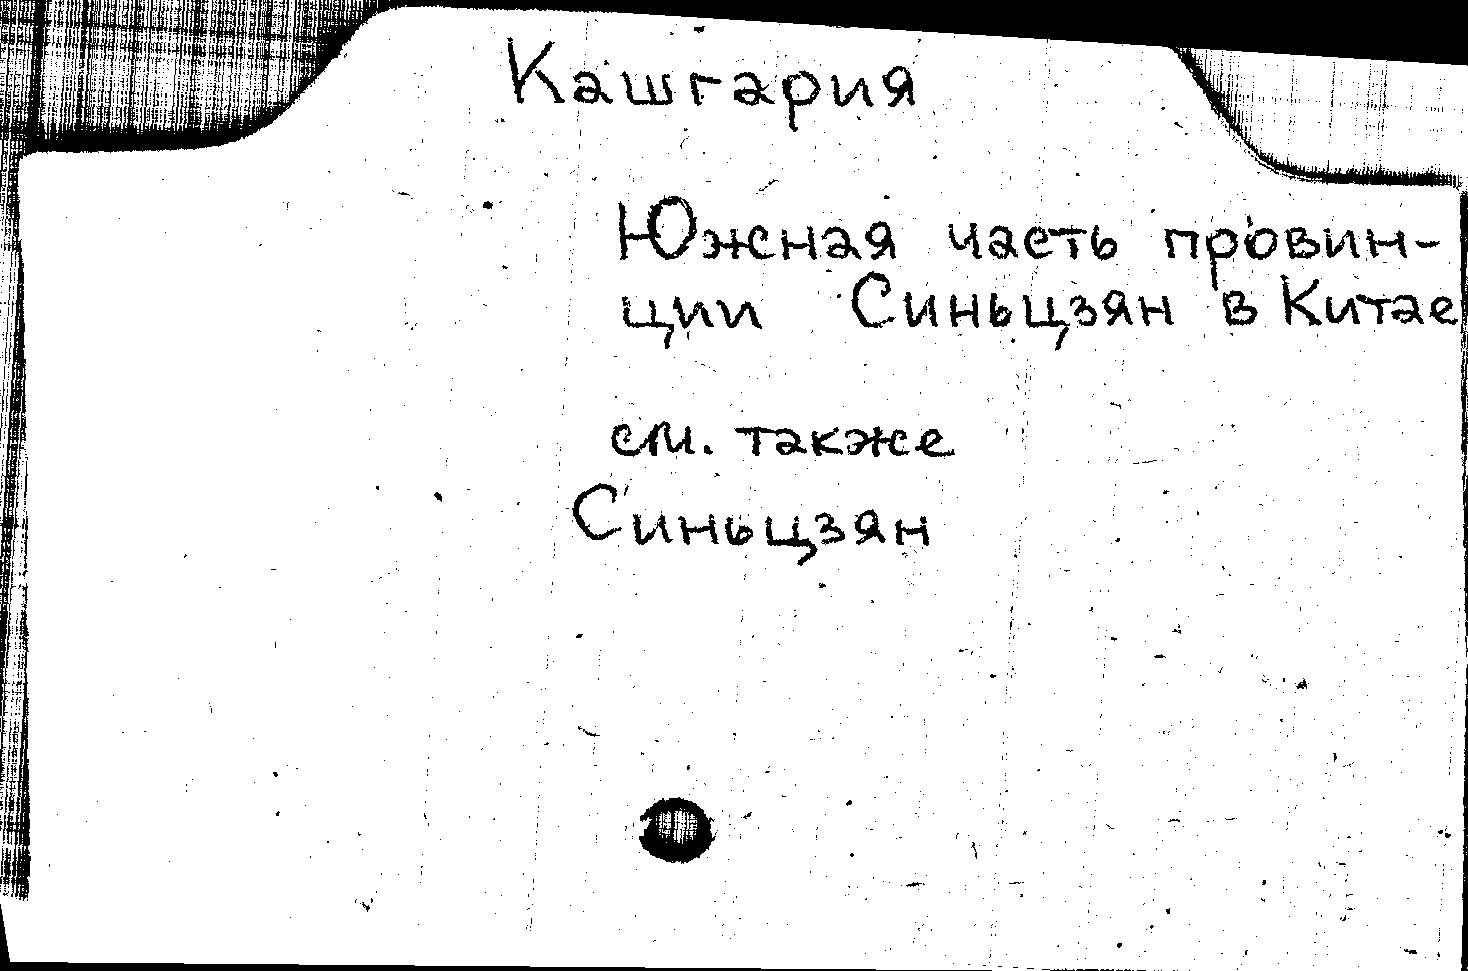 Кашгария
Южная часть провин-
ции Синьцзян в Китае
см. также
Синьцзян